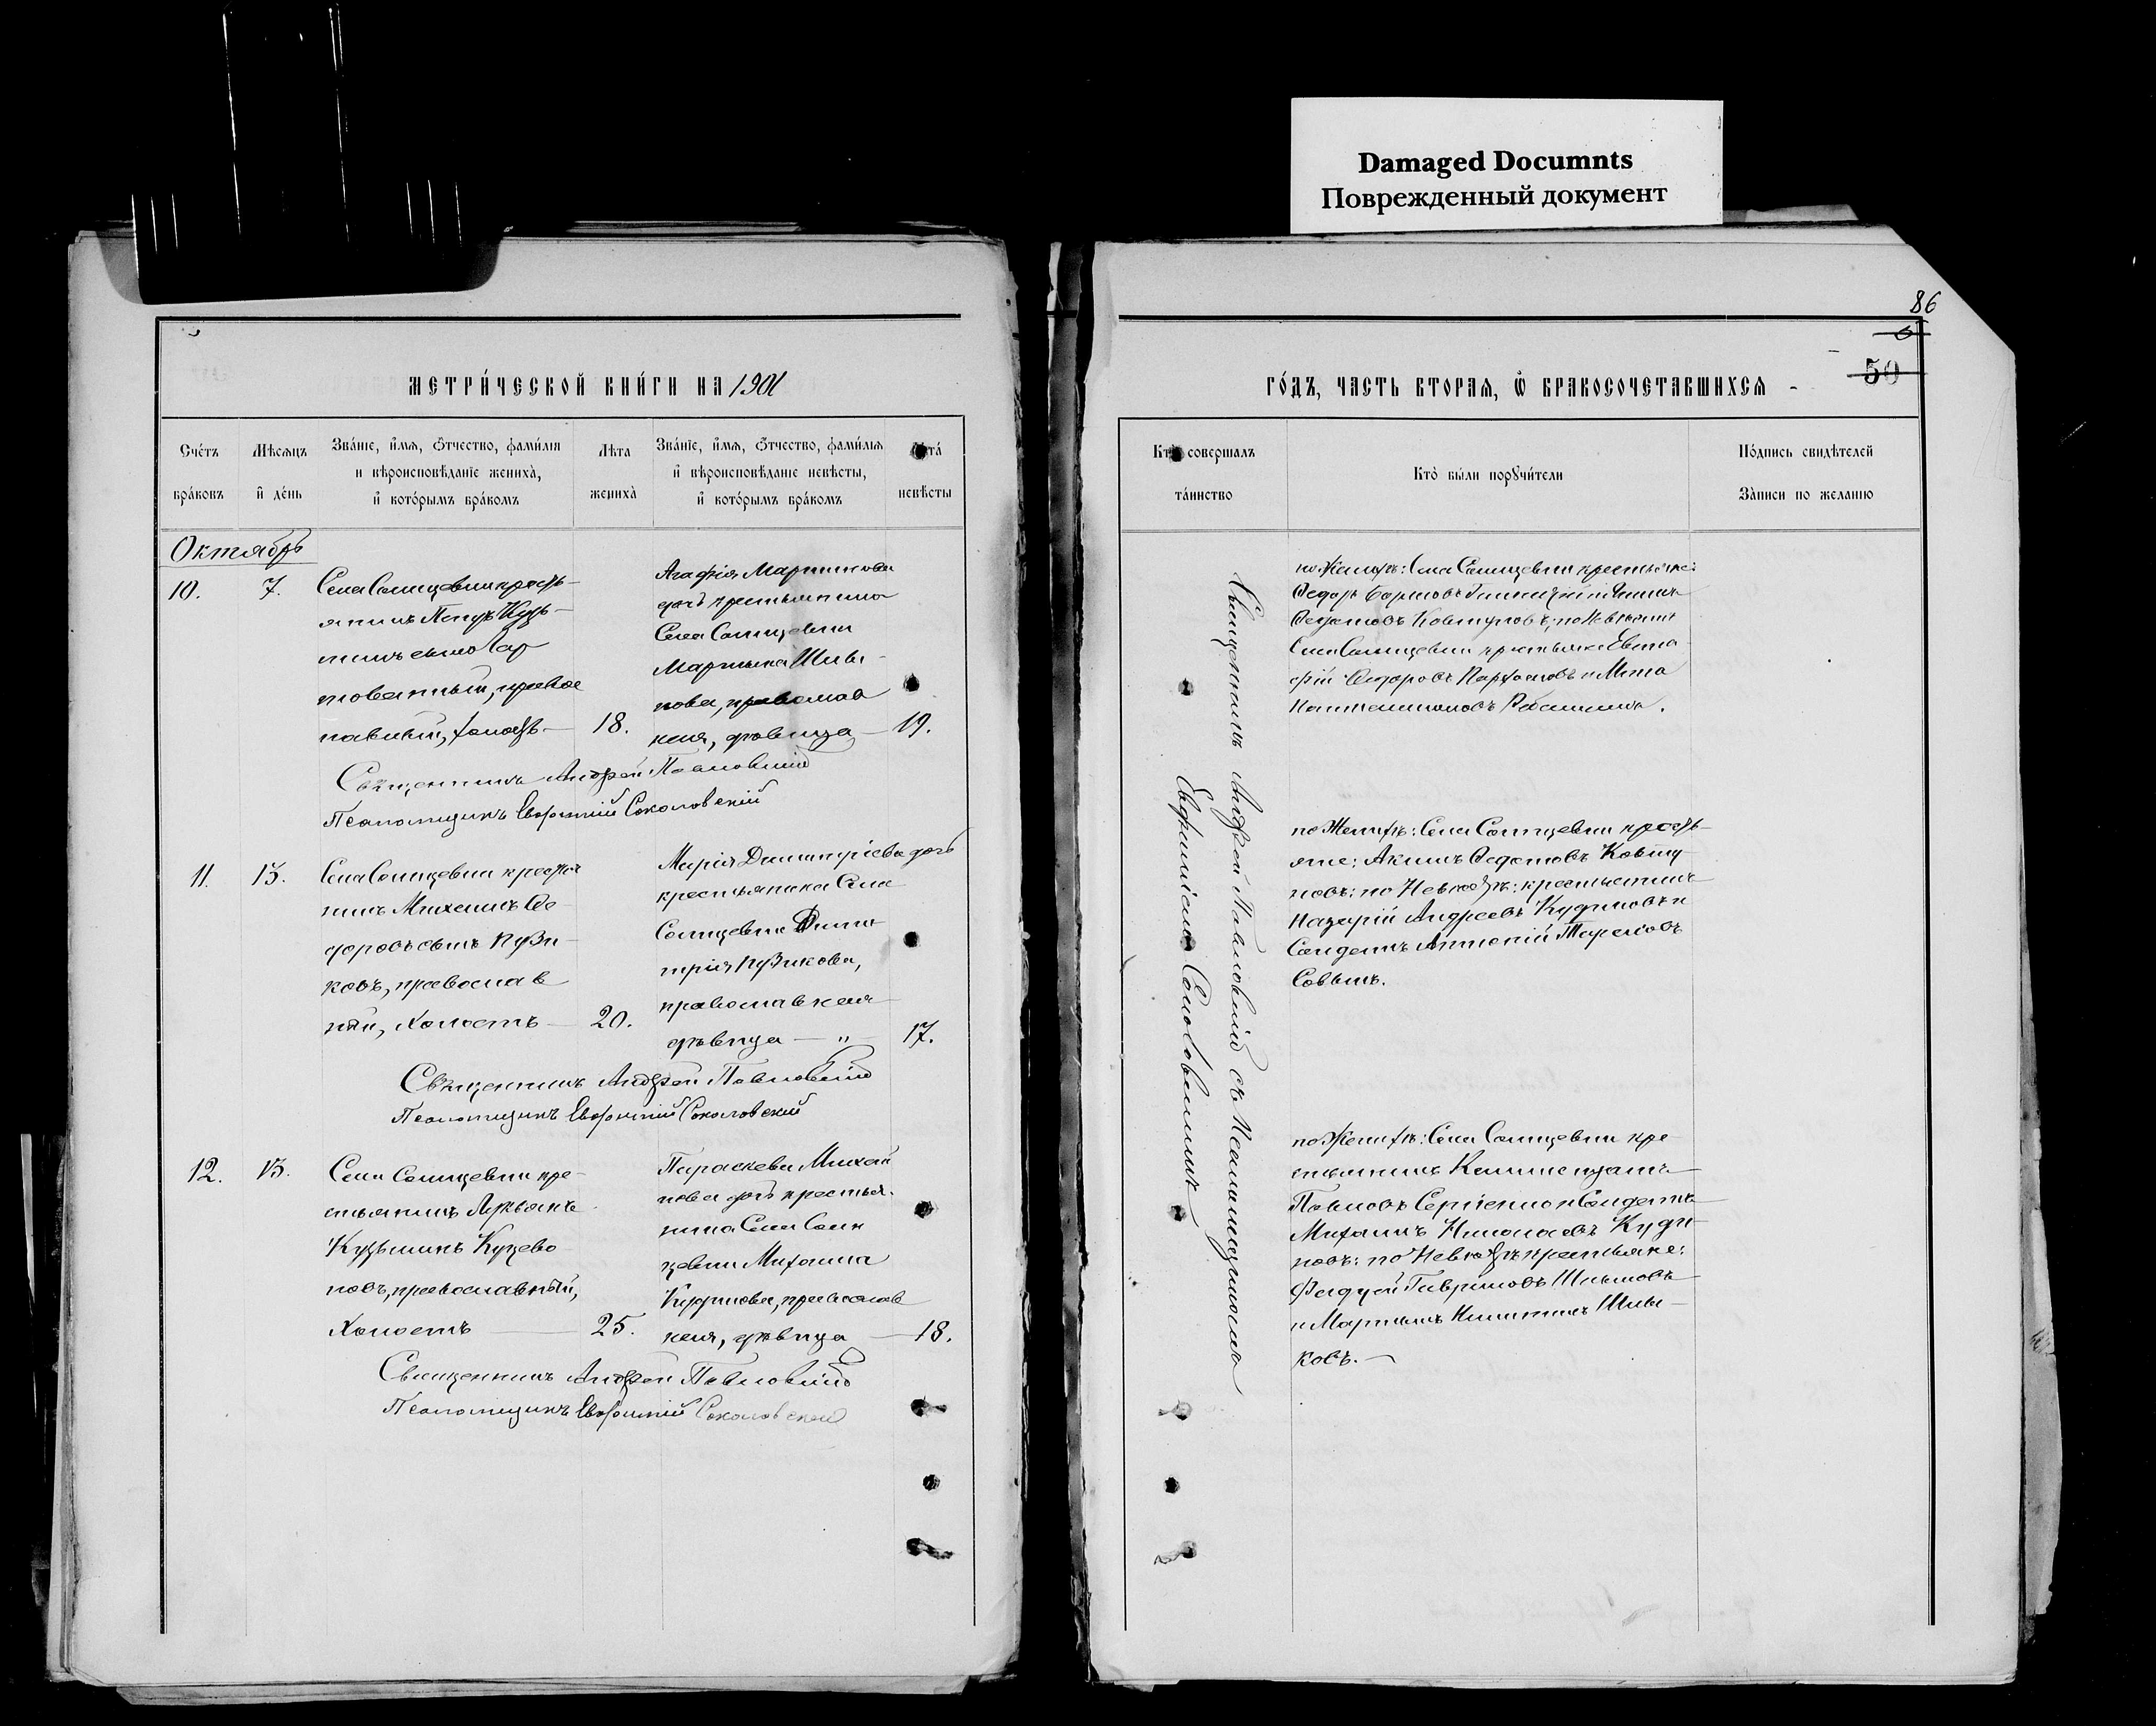 Damaged Documnts
Поврежденный документ
МЕТРИ́ЧЕСКОЙ КНИ́ГИ НА 1901
Сче́тъ бра́ковъ
Мѣсяцъ и҆ де́нь
Зва́нїе, и҆́мѧ, ѻ҆́тчество, фами́лїѧ и вѣроисповѣ́данїе жениха̀, и҆ кото́рымъ бра́комъ
Лѣта жениха̀
Зва́нїе, и҆́мѧ, ѻ҆́тчество, фами́льѧ и҆ вѣроисповѣ́данїе невѣ́сты, и҆ кото́рымъ бра́комъ
невѣ́сты
Октябрь
10.
7.
Села Солнцевки кресть-
янинъ Петръ Кузь-
товенный, правос
лавный, холостъ
18.
Агафія Мартинова
дочь крестьянина
Села Солнцевки
Мартина Шлы
кова, православ
ная, дѣвица
19.
Священникъ Андрей Павловскій
Псаломщикъ Евфимій Соколовскій
11.
13.
Села Солнцевки крестья
нинъ Михаилъ Ѳе
доровъ сынъ Пузи
ковъ, православ
ный, холостъ
20.
Марія Димитріева дочь
крестьянина Села
Солнцевки Дими
трія Пузикова,
православная
дѣвица — „
17.
Священникъ Андрей Павловскій
Псаломщикъ Евфимій Соколовскій
12.
13.
Села Солнцевки кре
стьянинъ Лукьянъ
Кузьминъ
новъ, православный,
Холостъ
25.
Параскева Михаи
лова дочь крестья
нина Села Солн
цевки Михаила
православ
ная, дѣвица
18.
Священникъ Андрей Павловскій
Псаломщикъ Евфимій Соколовскій
86
50
ГО́ДЪ, ЧАСТЬ ВТОРАѦ, Ѡ҆ БРАКОСОЧЕТАВШИХСѦ
совершалъ та́инство
Кто̀ бы́ли порꙋчи́тели
По́дпись свидѣ́телей За́писи по желанїю
Священникъ Андрей Павловскій съ Псаломщикомъ
Евфиміемъ Соколовскимъ
по Женихѣ: Села Солнцевки крестьяне:
Ѳедотовъ Ковтуновъ; по Невѣстѣ
Села Солнцевки крестьяне Евста
фій Ѳедоровъ Пархомовъ и
по Женихѣ: Села Солнцевки кресть
яне: Акимъ Ѳедотовъ Ковту
новъ: по Невѣстѣ: крестьянинъ
Назарій Андреевъ Кудиновъ и
Солдатъ Антоній Тарасовъ
по Женихѣ: Села Солнцевки кре
стьянинъ
Павловъ Сергіенко и Солдатъ
Михаилъ Николаевъ Куди
новъ: по Невѣстѣ крестьяне:
Фаддей Гавриловъ Шлыковъ
и Мартинъ Никитинъ Шлы
ковъ.